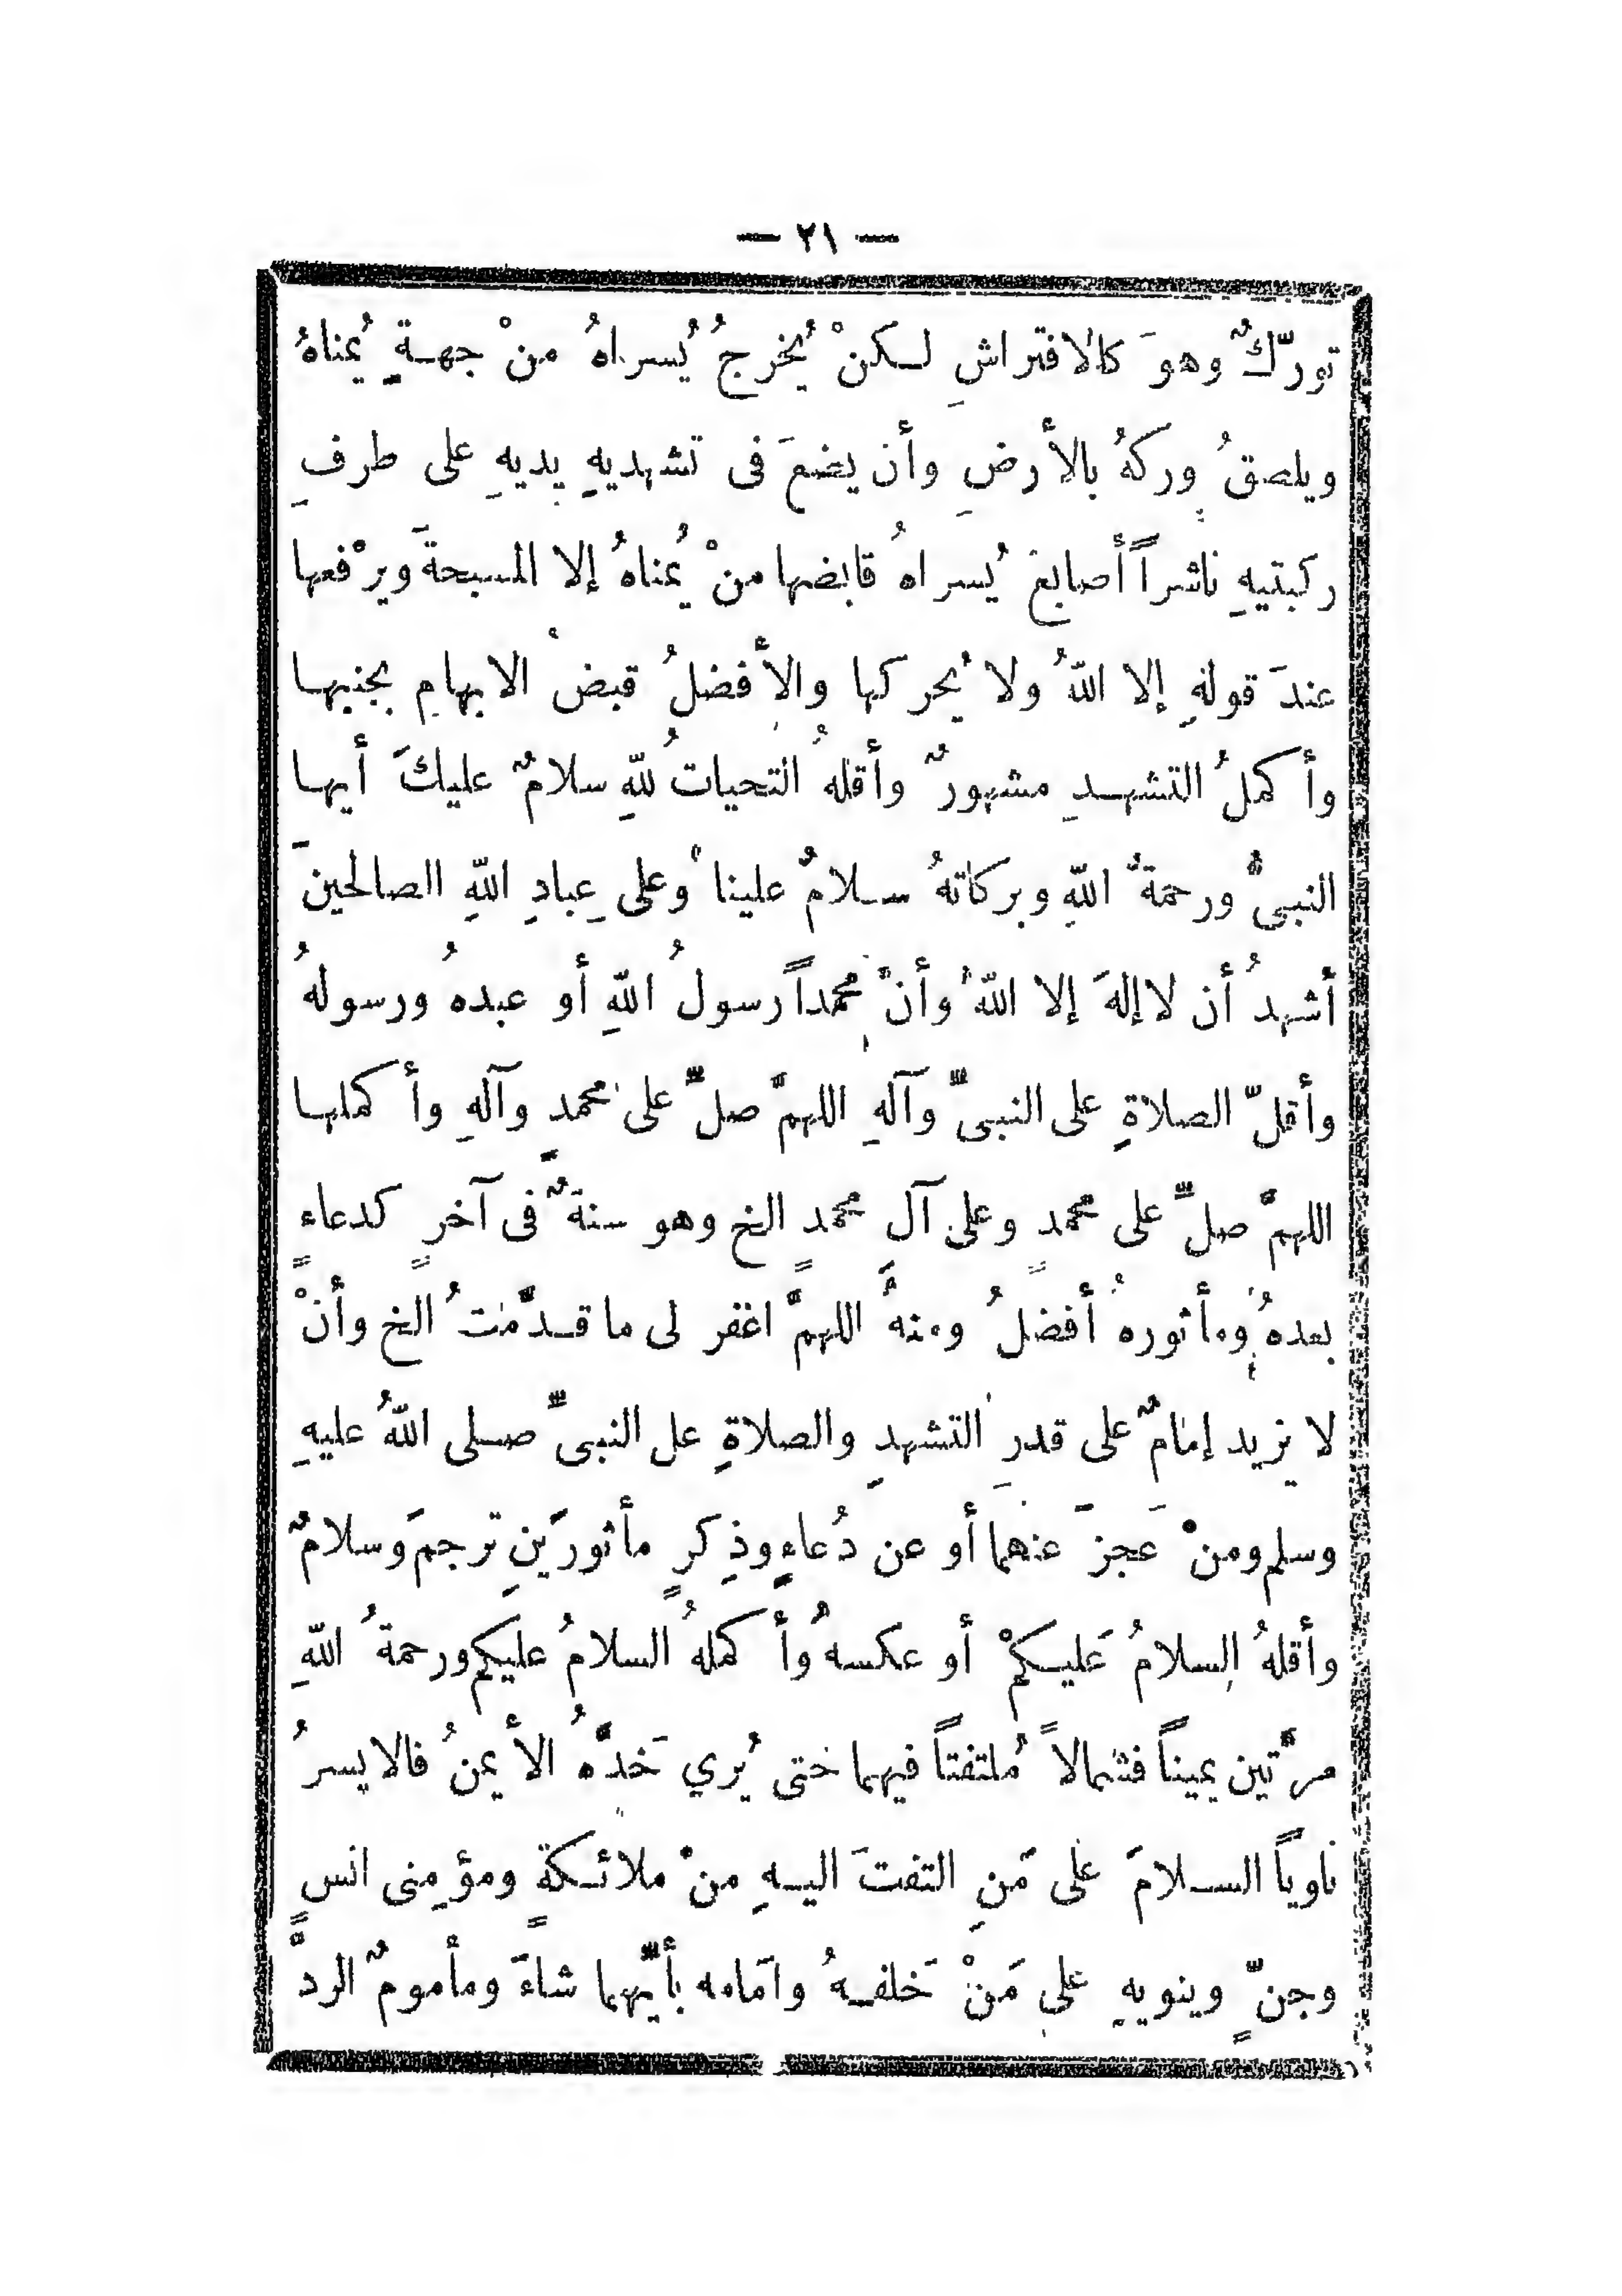 — ٢١ —
تورّكٌ وهوَ كالافتراشِ لكنْ يُخرجُ يُسراهُ منْ جهةِ يُمناهُ
ويلصقُ وركهُ بالأرضِ وأن يضعَ فى تشهديهِ يديهِ على طرفِ
ركبتيهِ ناشراً أصابعَ يُسراهُ قابضها منْ يُمناهُ إلا المسبحةَ ويرْفعها
عندَ قولهِ إلا اللّهُ ولا يُحركها والأفضلُ قبضُ الابهامِ بجنبها
وأكملُ التشهدِ مشهورٌ وأقلهُ التحياتُ للّهِ سلامٌ عليكَ أيها
النبىُّ ورحمةُ اللّهِ وبركاتهُ سلامٌ علينا وعلى عِبادِ اللّهِ الصالحينَ
أشهدُ أن لا إلهَ إلا اللّهُ وأنّ محمداً رسولُ اللّهِ أو عبدهُ ورسولهُ
وأقلّ الصلاةِ على النبىِّ وآلهِ اللهمَّ صلِّ على محمدٍ وآلهِ وأكملها
اللهمَّ صلِّ على محمدٍ وعلى آلِ محمدٍ الخ وهو سنةٌ فى آخرٍ كدعاءٍ
بعدهُ ومأثورهُ أفضلُ ومنهُ اللهمَّ اغفر لى ما قدَّمتُ الخ وأنْ
لا يزيد إمامٌ على قدرِ التشهدِ والصلاةِ عل النبىِّ صلى اللّهُ عليهِ
وسلم ومنْ عَجزَ عنهما أو عن دُعاءٍ وذِكرٍ مأثورَينِ ترجمَ وسلامٌ
وأقلهُ السلامُ عَليكمْ أو عكسهُ وأكملهُ السلامُ عليكم ورحمةُ اللّهِ
مرَّتين يميناً فشمالاً مُلتفتاً فيهما حتى يُري خَدَّهُ الأيمنُ فالايسرُ
ناوياً السلامَ على مَنِ التفتَ اليهِ منْ ملائكةٍ ومؤمِنى انسٍ
وجنٍّ وينويهِ على مَنْ خَلفهُ وامَامه بأيِّهما شاءَ ومأمومٌ الردَّ